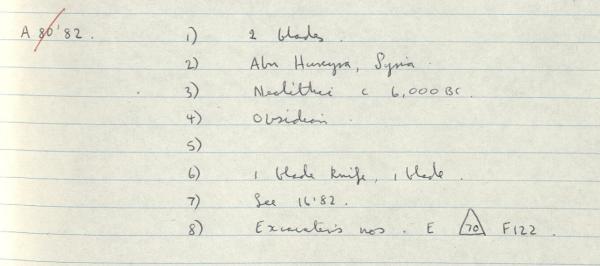 A 80'82. 1) 2 blades.
2) Abu Hureyra, Syria.
3) Neolithic c 6,000 BC.
4) Obsidian.
5)
6) 1 blade knife, 1 blade.
7) See 16'82.
8) Excavator's nos. E 70 F122.